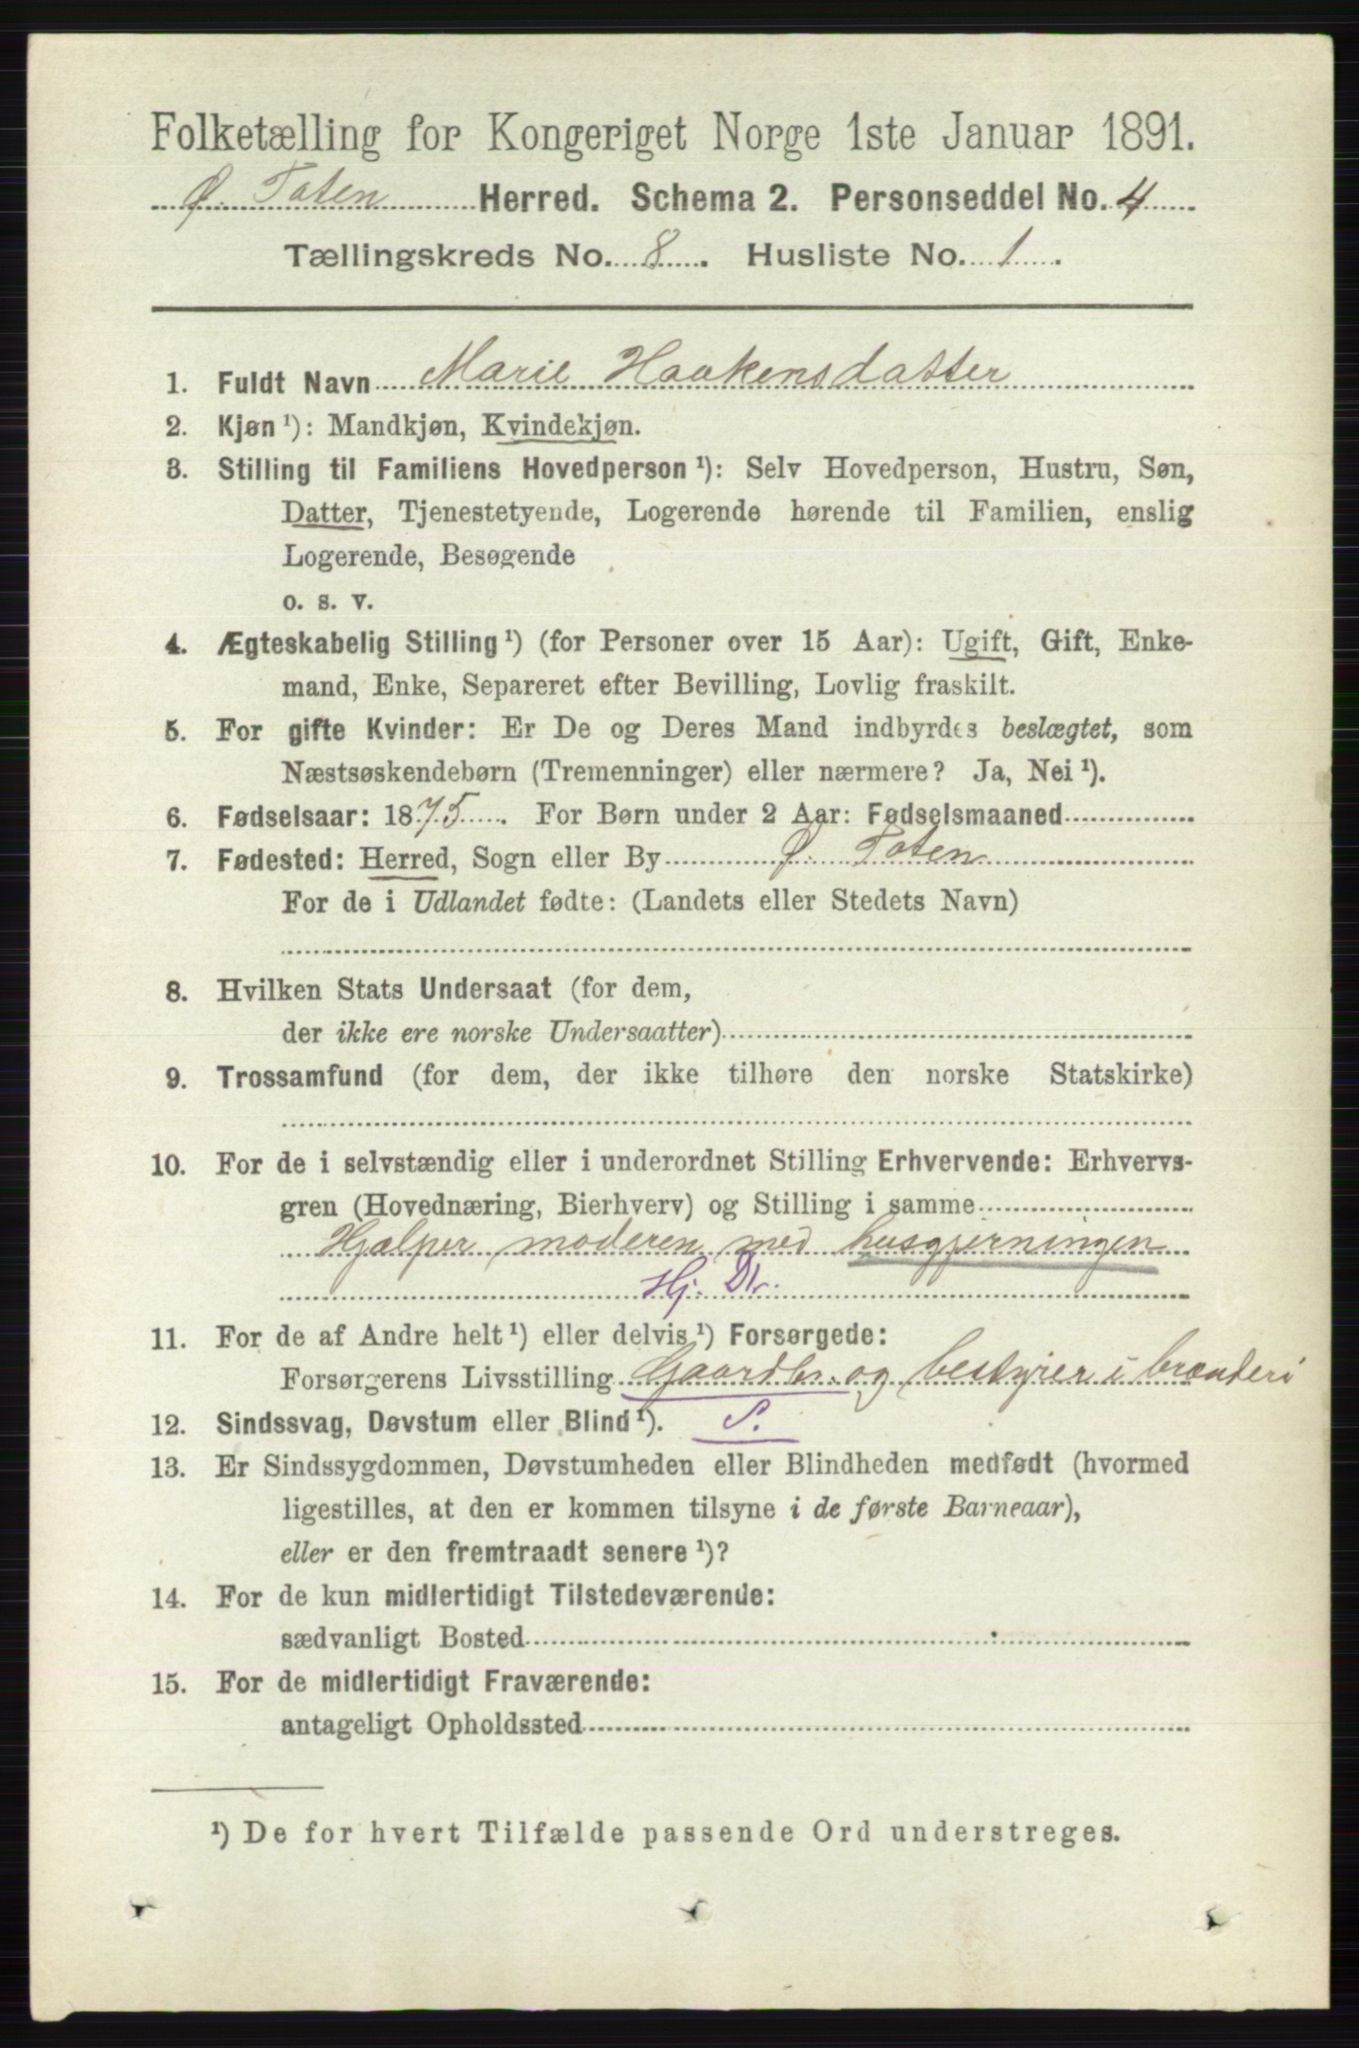 Folketælling for Kongeriget Norge 1ste Januar 1891.
Ø. Toten Herred. Schema 2. Personseddel No. 4
Tællingskreds No. 8. Husliste No. 1.
1. Fuldt Navn Marie Haakensdatter
2. Kjøn ¹): Mandkjøn, Kvindekjøn.
3. Stilling til Familiens Hovedperson ¹): Selv Hovedperson, Hustru, Søn,
Datter, Tjenestetyende, Logerende hørende til Familien, enslig
Logerende, Besøgende
o. s. v.
4. Ægteskabelig Stilling ¹) (for Personer over 15 Aar): Ugift, Gift, Enke-
mand, Enke, Separeret efter Bevilling, Lovlig fraskilt.
5. For gifte Kvinder: Er De og Deres Mand indbyrdes beslægtet, som
Næstsøskendebørn (Tremenninger) eller nærmere? Ja, Nei ¹).
6. Fødselsaar: 1875. For Børn under 2 Aar: Fødselsmaaned
7. Fødested: Herred, Sogn eller By Ø. Toten
For de i Udlandet fødte: (Landets eller Stedets Navn)
8. Hvilken Stats Undersaat (for dem,
der ikke ere norske Undersaatter)
9. Trossamfund (for dem, der ikke tilhøre den norske Statskirke)
10. For de i selvstændig eller i underordnet Stilling Erhvervende: Erhvervs-
gren (Hovednæring, Bierhverv) og Stilling i samme
Hjælper moderen med husgjerningen
Hj. Dtr.
11. For de af Andre helt ¹) eller delvis ¹) Forsørgede:
Forsørgerens Livsstilling Gaardbr. og bestyrer i brænderi
12. Sindssvag, Døvstum eller Blind ¹). S.
13. Er Sindssygdommen, Døvstumheden eller Blindheden medfødt (hvormed
ligestilles, at den er kommen tilsyne i de første Barneaar),
eller er den fremtraadt senere ¹)?
14. For de kun midlertidigt Tilstedeværende:
sædvanligt Bosted
15. For de midlertidigt Fraværende:
antageligt Opholdssted
¹) De for hvert Tilfælde passende Ord understreges.